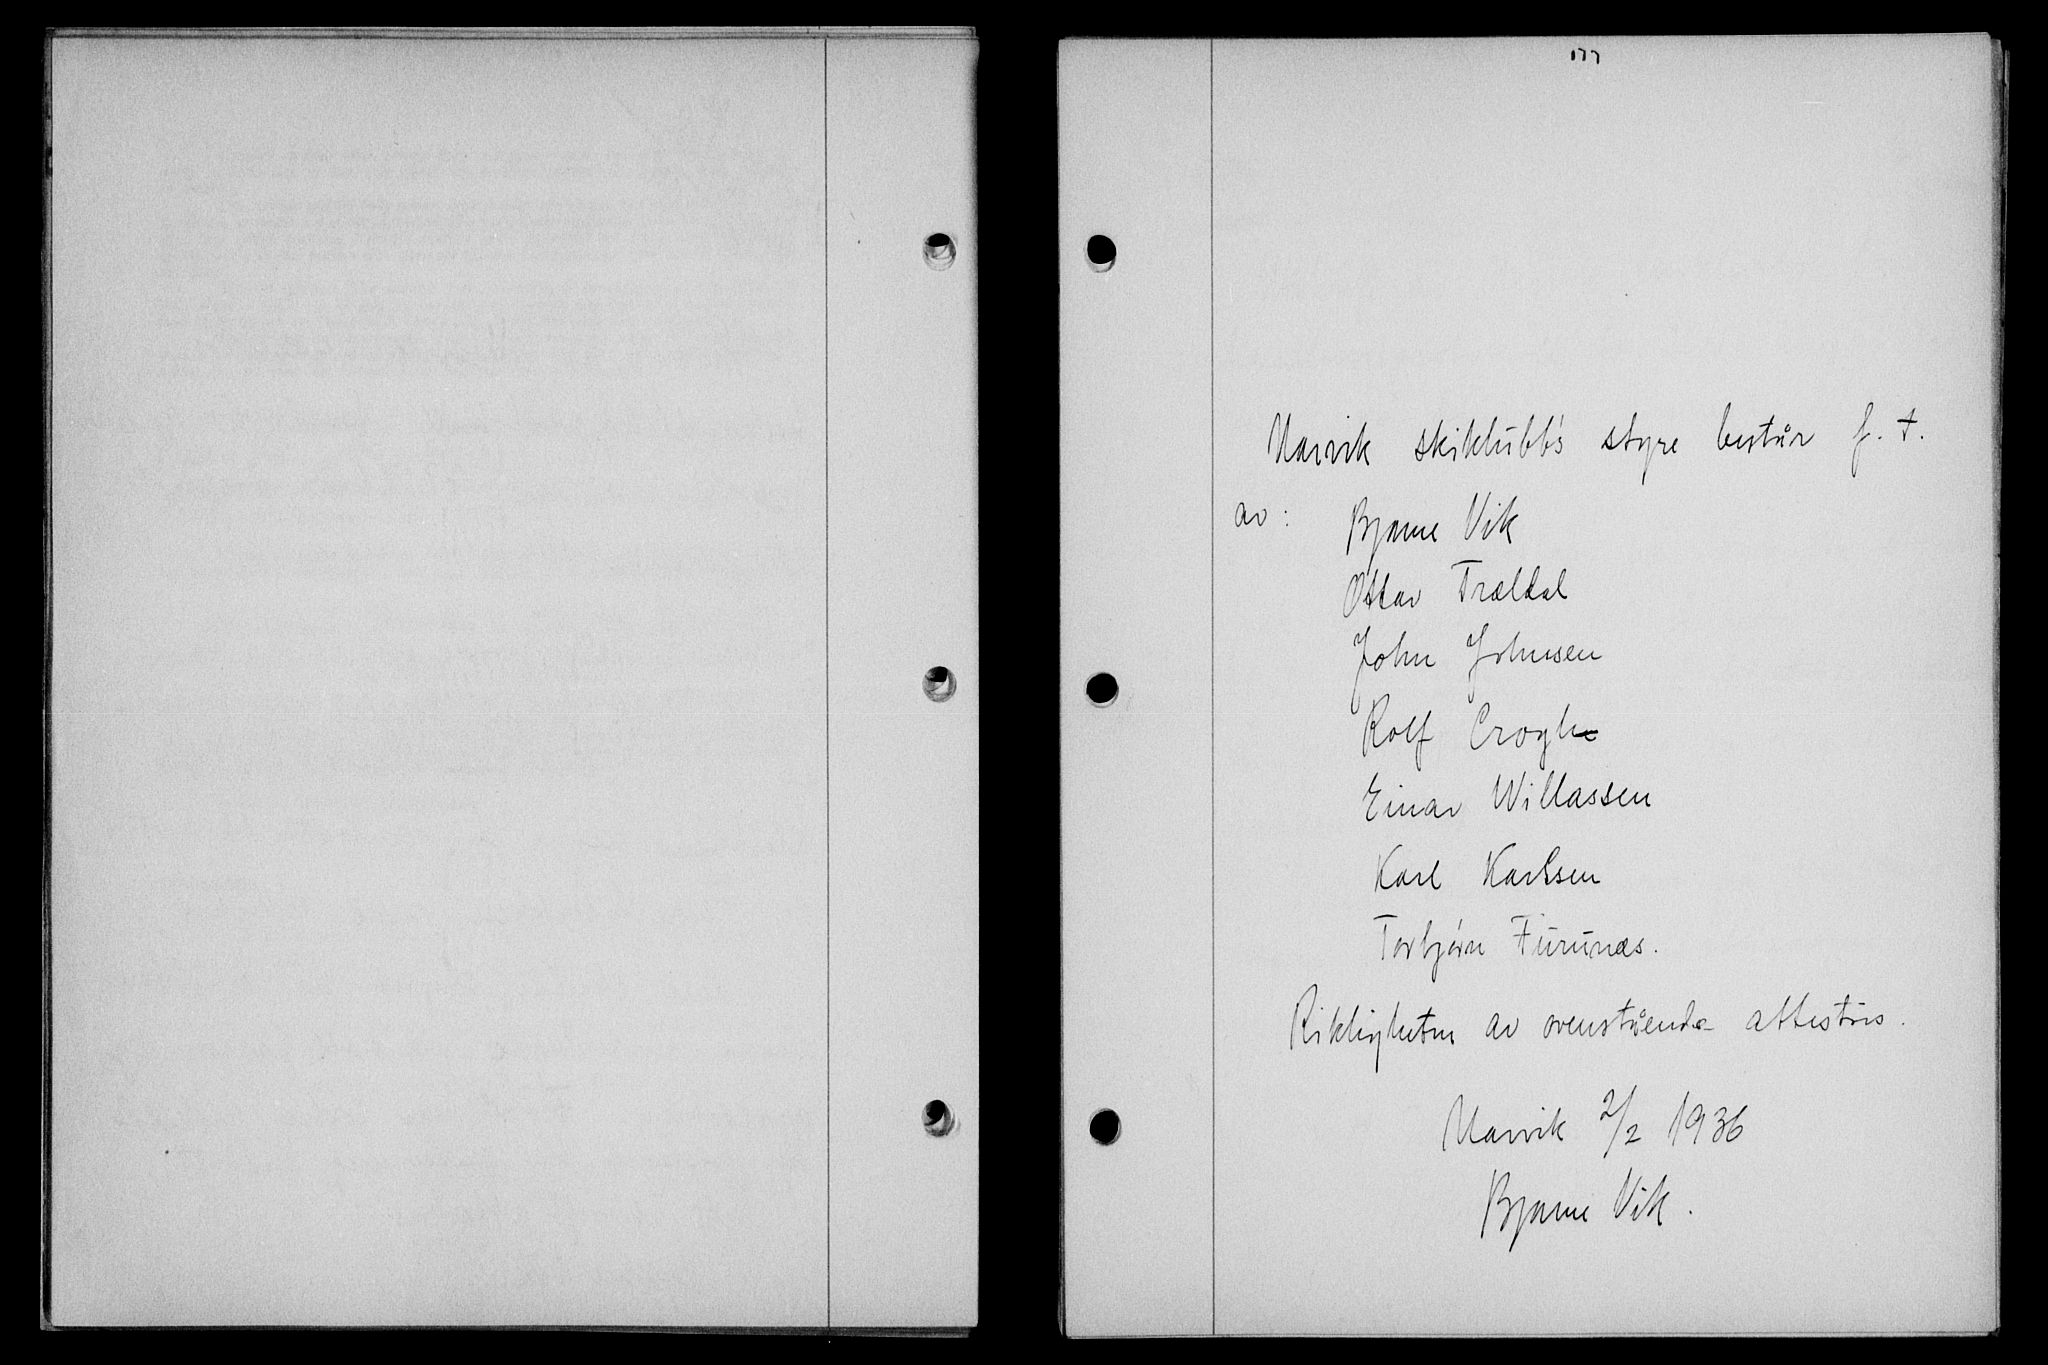 177
Narvik skiklubb's styre består f. t.
av: Bjarne Vik
Ottar Trældal
John Johnsen
Rolf Crogh
Einar Willassen
Karl Karlsen
Torbjørn Furunæs.
Riktigheten av ovenstående attesteres.
Narvik 2/2 1936
Bjarne Vik.